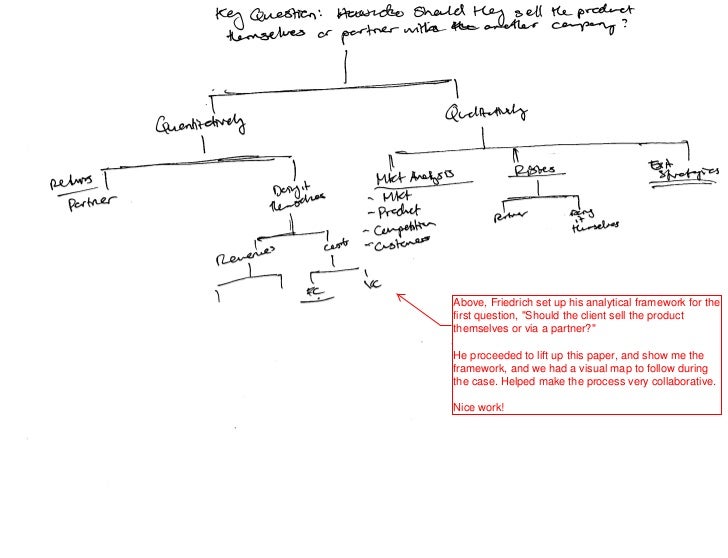 Key Question: should they sell the product
themselves or partner with another company?
Quantitatively
Qualitatively
Returns
Partner
Doing it
themselves
Revenues
Costs
FC
VC
Mkt Analysis
- Mkt
- Product
- Competition
- Customers
Risks
Partner
Doing
it
themselves
Exit
Strategies
Above, Friedrich set up his analytical framework for the
first question, "Should the client sell the product
themselves or via a partner?"
He proceeded to lift up this paper, and show me the
framework, and we had a visual map to follow during
the case. Helped make the process very collaborative.
Nice work!